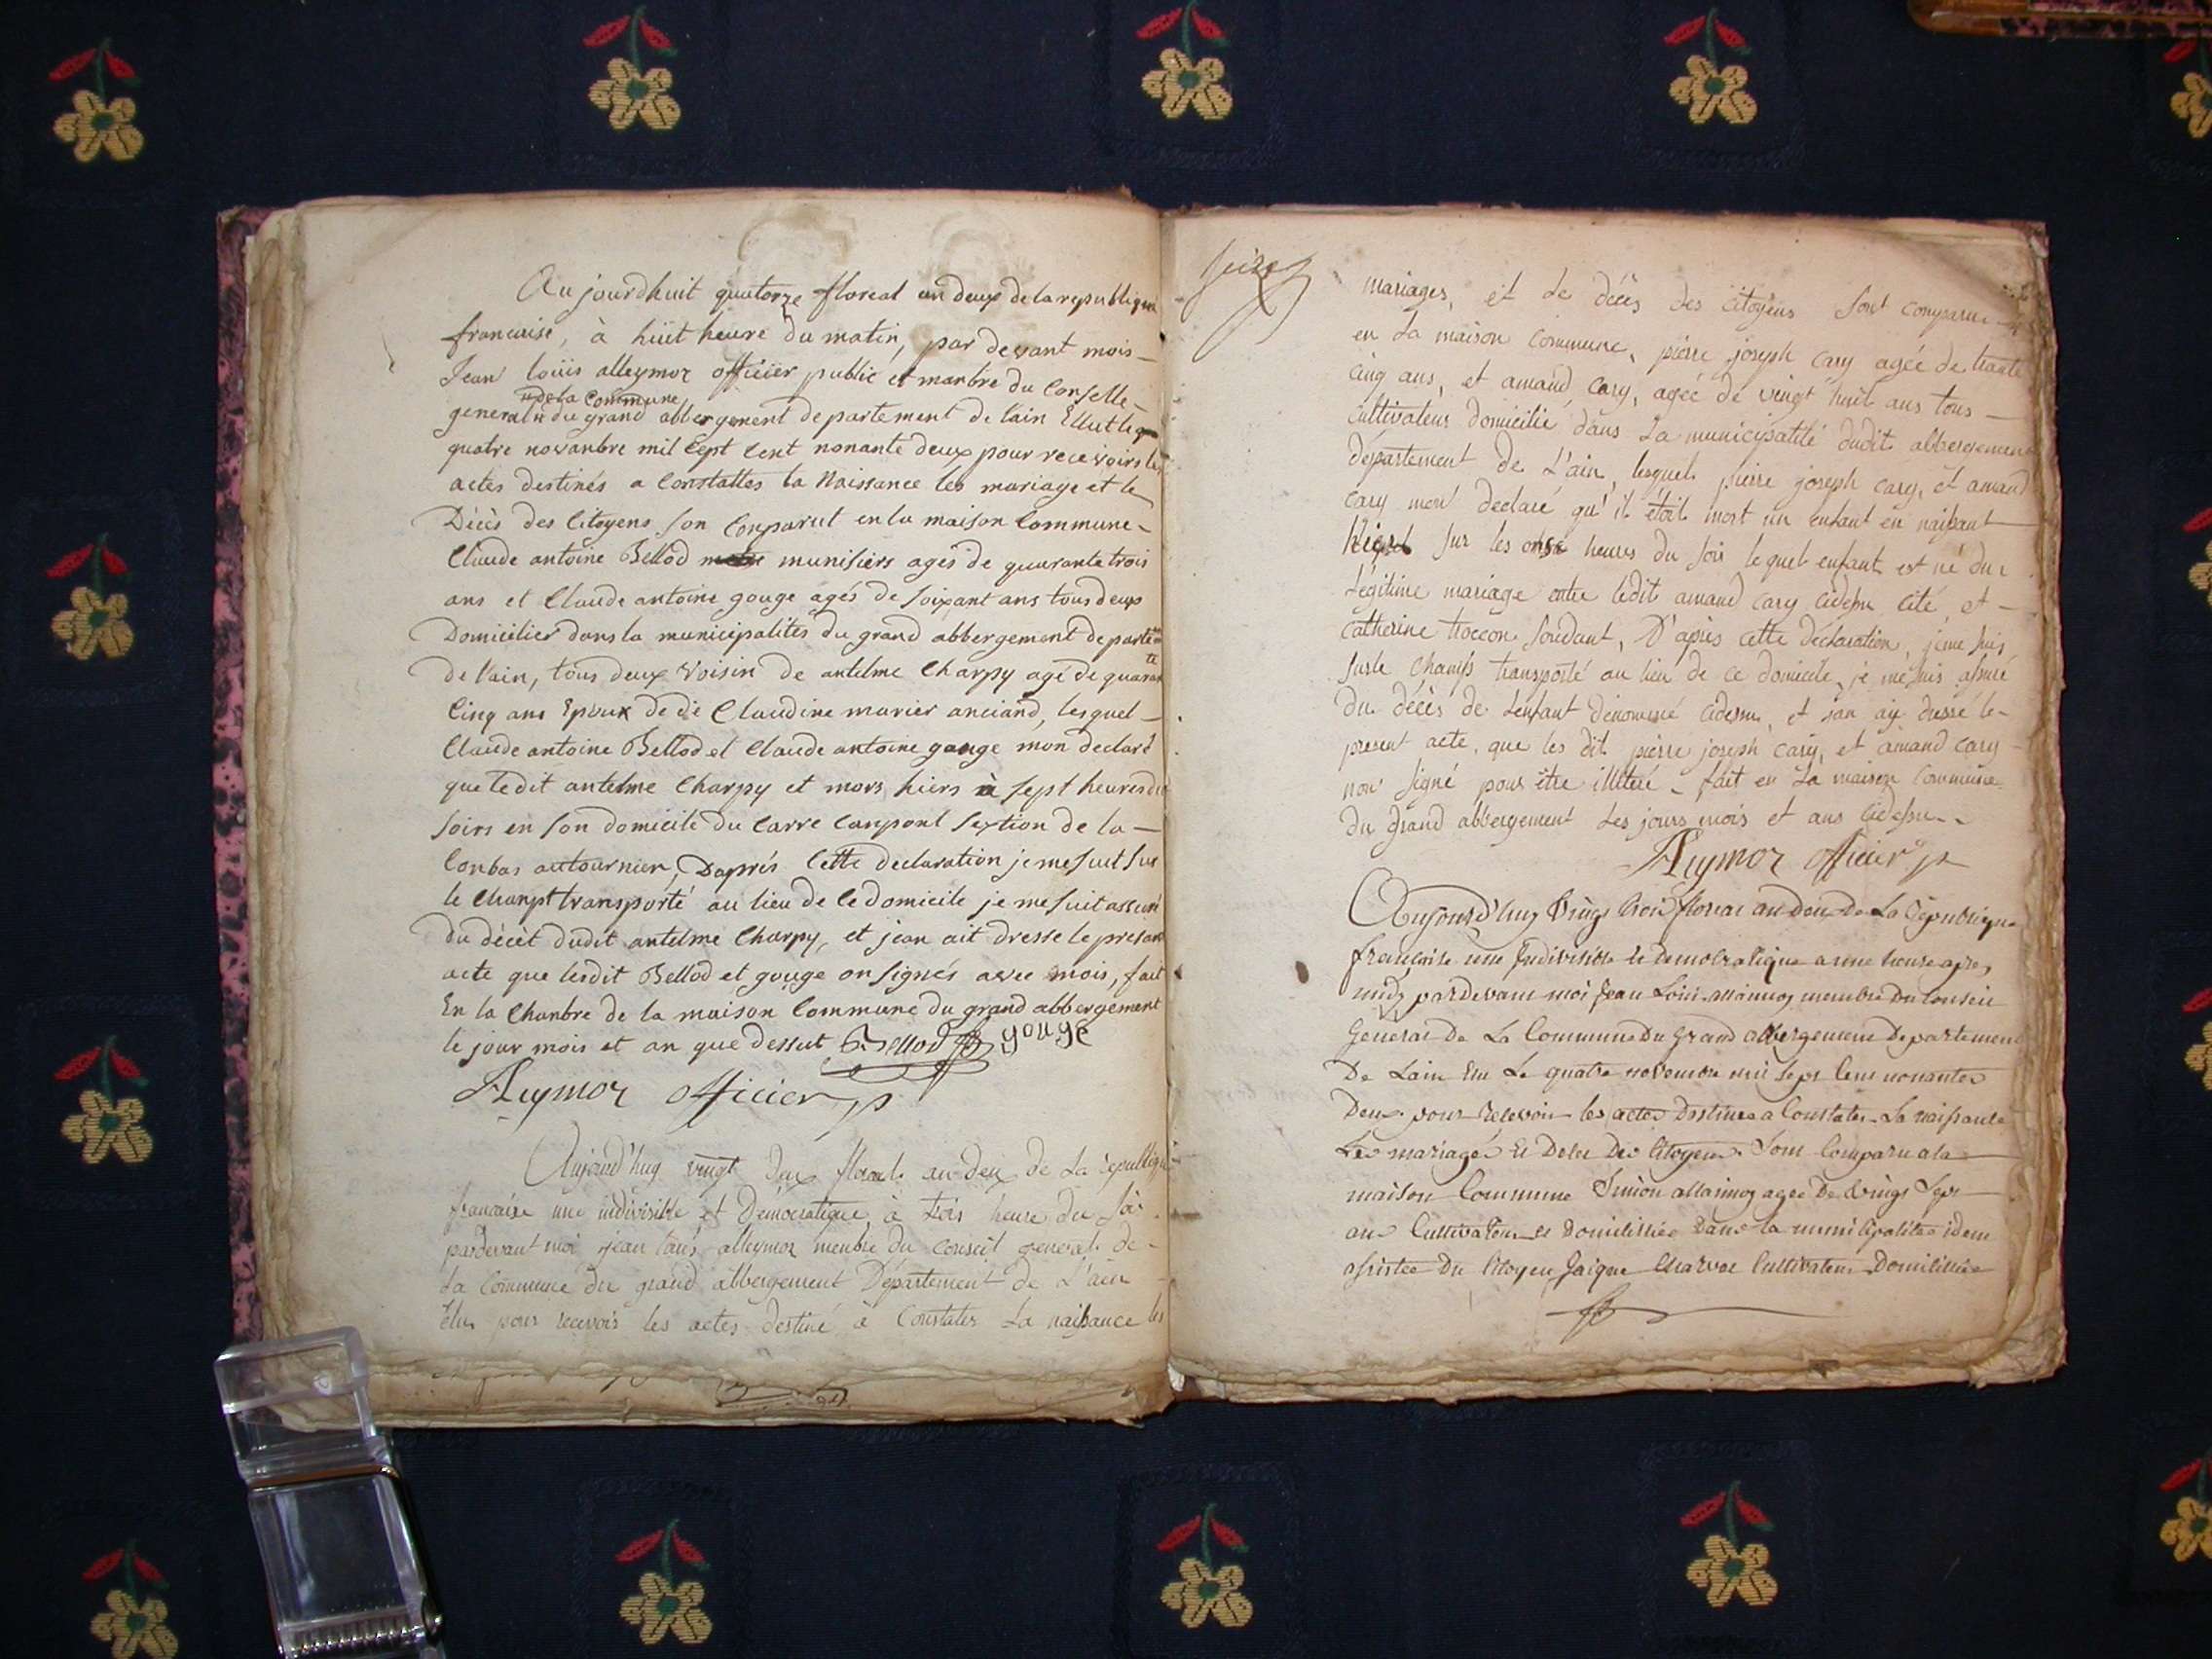 Aujourdhuit quatorze floreal an deux de la republique
francaise, à hüit heure du matin, par devant mois
Jean loüis alleymoz officiër public et manbre du Conselle
de la Commune
general du grand abbergement departement de lain Ellut le
quatre novanbre mil Cept Cent nonante deux pour recevoirs les
actes destinés a Constattes la Naissance les mariage et le
Décès des Citoyens son Conparut en la maison Commune
Claude antoine Bellod munisiers agés de quarante trois
ans et Claude antoine gouge agés de soixant ans tous deux
Domicilier dans la municipalités du grand abbergement departe
de l'ain, tous deux voisin de antelme Charpy agé de quarante
Cinq ans Epoux de Claudine marier anciand, lesquel
Claude antoine Bellod et Claude antoine gouge mon declaré
que ledit antelme Charpy et mors hiers à sept heures du
soirs en son domicile du Carre Canpont sextion de la
Conbas autournier, Daprés Cette declaration je me suit sur
le Chanpt transporté au lieu de Ce domicile je me suit assuré
du décèt dudit antelme Charpy, et jean ait dresse le presant
acte que lesdit Bellod et gouge on signés avec mois, fait
En la Chanbre de la maison Commune du grand abbergement
le jour mois et an que dessut Bellod gouge
Aleymoz officier p
Aujourd'huy vingt deux floreal an deux de la republique
francaise une indivisible et Démocratique à trois heure du soir
pardevant moi jean louis alleymoz menbre du Conseil general de
la Commune du grand abbergement Département de L'ain
élu pour recevoir les actes destiné à Constater La naissance les
seize
mariages, et le décès des citoyens sont comparu
en la maison commune, pierre joseph cary agée de trante
cinq ans, et amand cary, agée de vingt huit ans tous
cultivateur domicilié dans la municipalité dudit abbergement
département de L'ain, lesquels pierre joseph cary, et amand
cary mont declaré qu'il étoit mort un enfant en naissant
hier sur les onse heures du soir lequel enfant est né du
légitime mariage entre ledit amand cary cidessu cité, et
catherine troccon, D'apres cette déclaration, jeme suis
surle champs transporté au lieu de ce domicile, je me suis assuré
du décès de lenfant dénommé cidessu, et jan ay dressé le
present acte, que les dit pierre joseph cary, et amand cary
non signé pour être illiteré, fait en la maison commune
du grand abbergement les jours mois et ans cidessu
Aleymoz officier p
Aujourd'huy Vingt trois floreal an deux de La republique
francaise une Indivisible et democratique a une heure apres
midy pardevant moi jean Louis allaimoz membre du Conseil
General de La Commune du grand abbergement Departement
De Lain Elu Le quatre novembre mil sept Cens nonantes
Deux pour recevoir les actes Destinés a Constater La naissance
Les mariages et Deces Des Citoyens sont Comparu a la
maison Commune Simon allaimoz agée De Vingt sept
ans Cultivateur et Domicilliée Dans la municipalitée idem
assistée Du Citoyen jaique Charvet Cultivateur Domicilliée